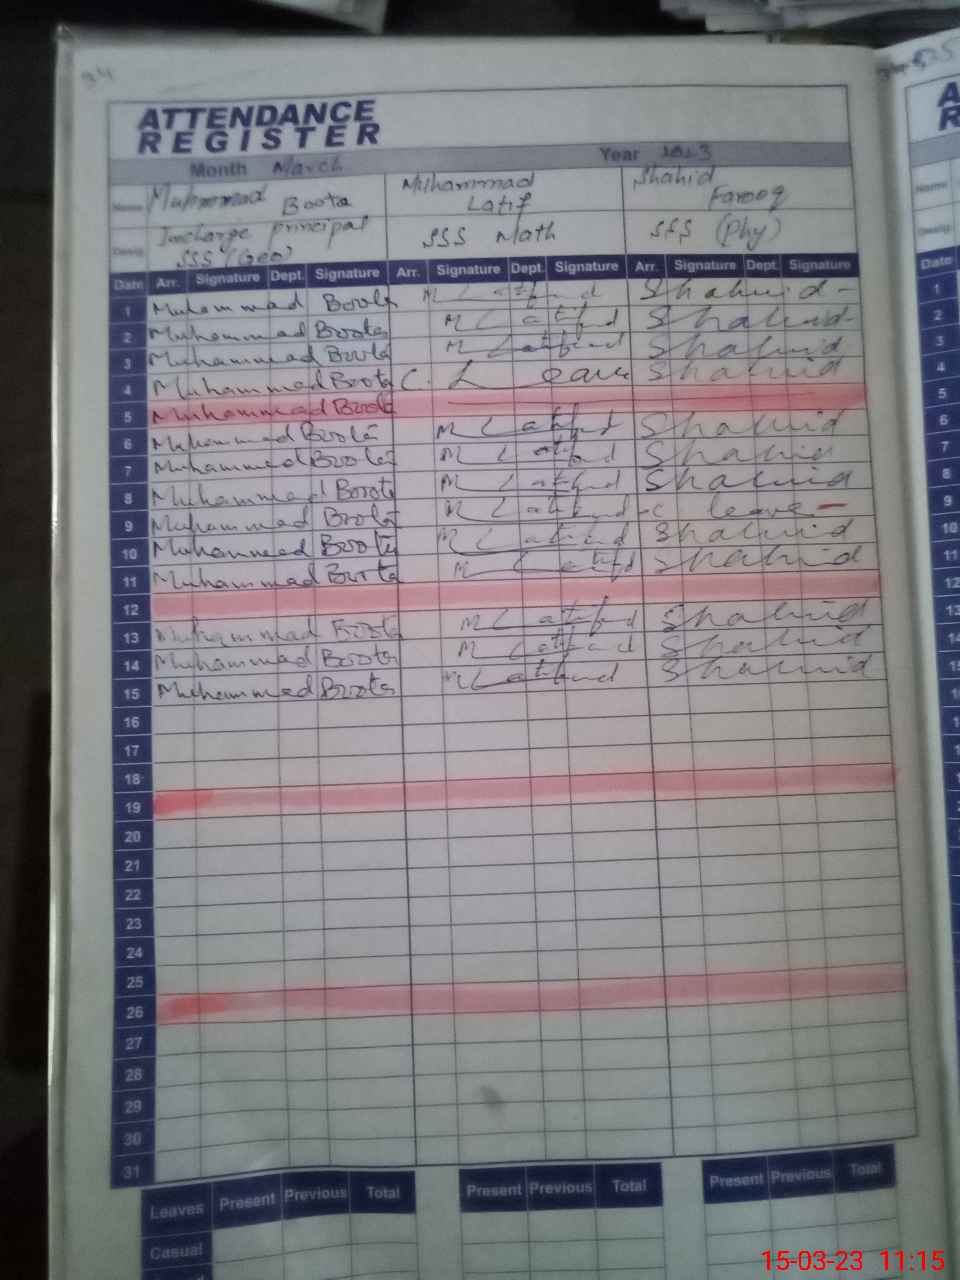 34
ATTENDANCE
REGISTER
Month March Year 2023
Name Muhammad Boota Muhammad Latif Shahid Farooq
Desig. Incharge principal SSS (Geo) SSS Math SSS (Phy)
Date Arr. Signature Dept. Signature Arr. Signature Dept. Signature Arr. Signature Dept. Signature
1 Muhammad Boota M Latif Shahid
2 Muhammad Boota M Latif Shahid
3 Muhammad Boota M Latif Shahid
4 Muhammad Boota C. Leave Shahid
5 Muhammad Boota
6 Muhammad Boota M Latif Shahid
7 Muhammad Boota M Latif Shahid
8 Muhammad Boota M Latif Shahid
9 Muhammad Boota M Latif c leave
10 Muhammad Boota M Latif Shahid
11 Muhammad Boota M Latif Shahid
12
13 Muhammad Boota M Latif Shahid
14 Muhammad Boota M Latif Shahid
15 Muhammad Boota M Latif Shahid
16
17
18
19
20
21
22
23
24
25
26
27
28
29
30
31
Leaves Present Previous Total Present Previous Total Present Previous Total
Casual
A
R
Name
Desig.
Date
1
2
3
4
5
6
7
8
9
10
11
12
13
14
15
15-03-23 11:15